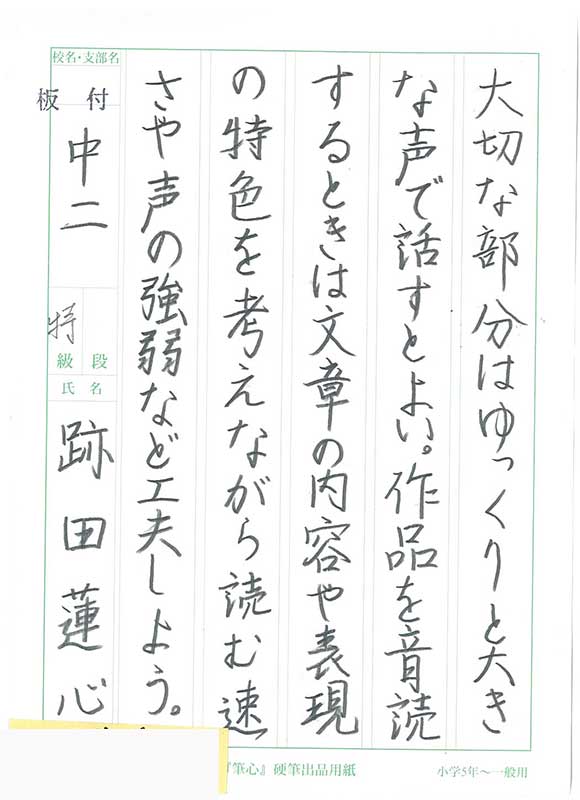 大切な部分はゆっくりと大き
な声で話すとよい。作品を音読
するときは文章の内容や表現
の特色を考えながら読む速
さや声の強弱など工夫しよう。
校名・支部名
板付
中二
特
級段
氏名
跡田蓮心
『筆心』硬筆出品用紙
小学5年〜一般用